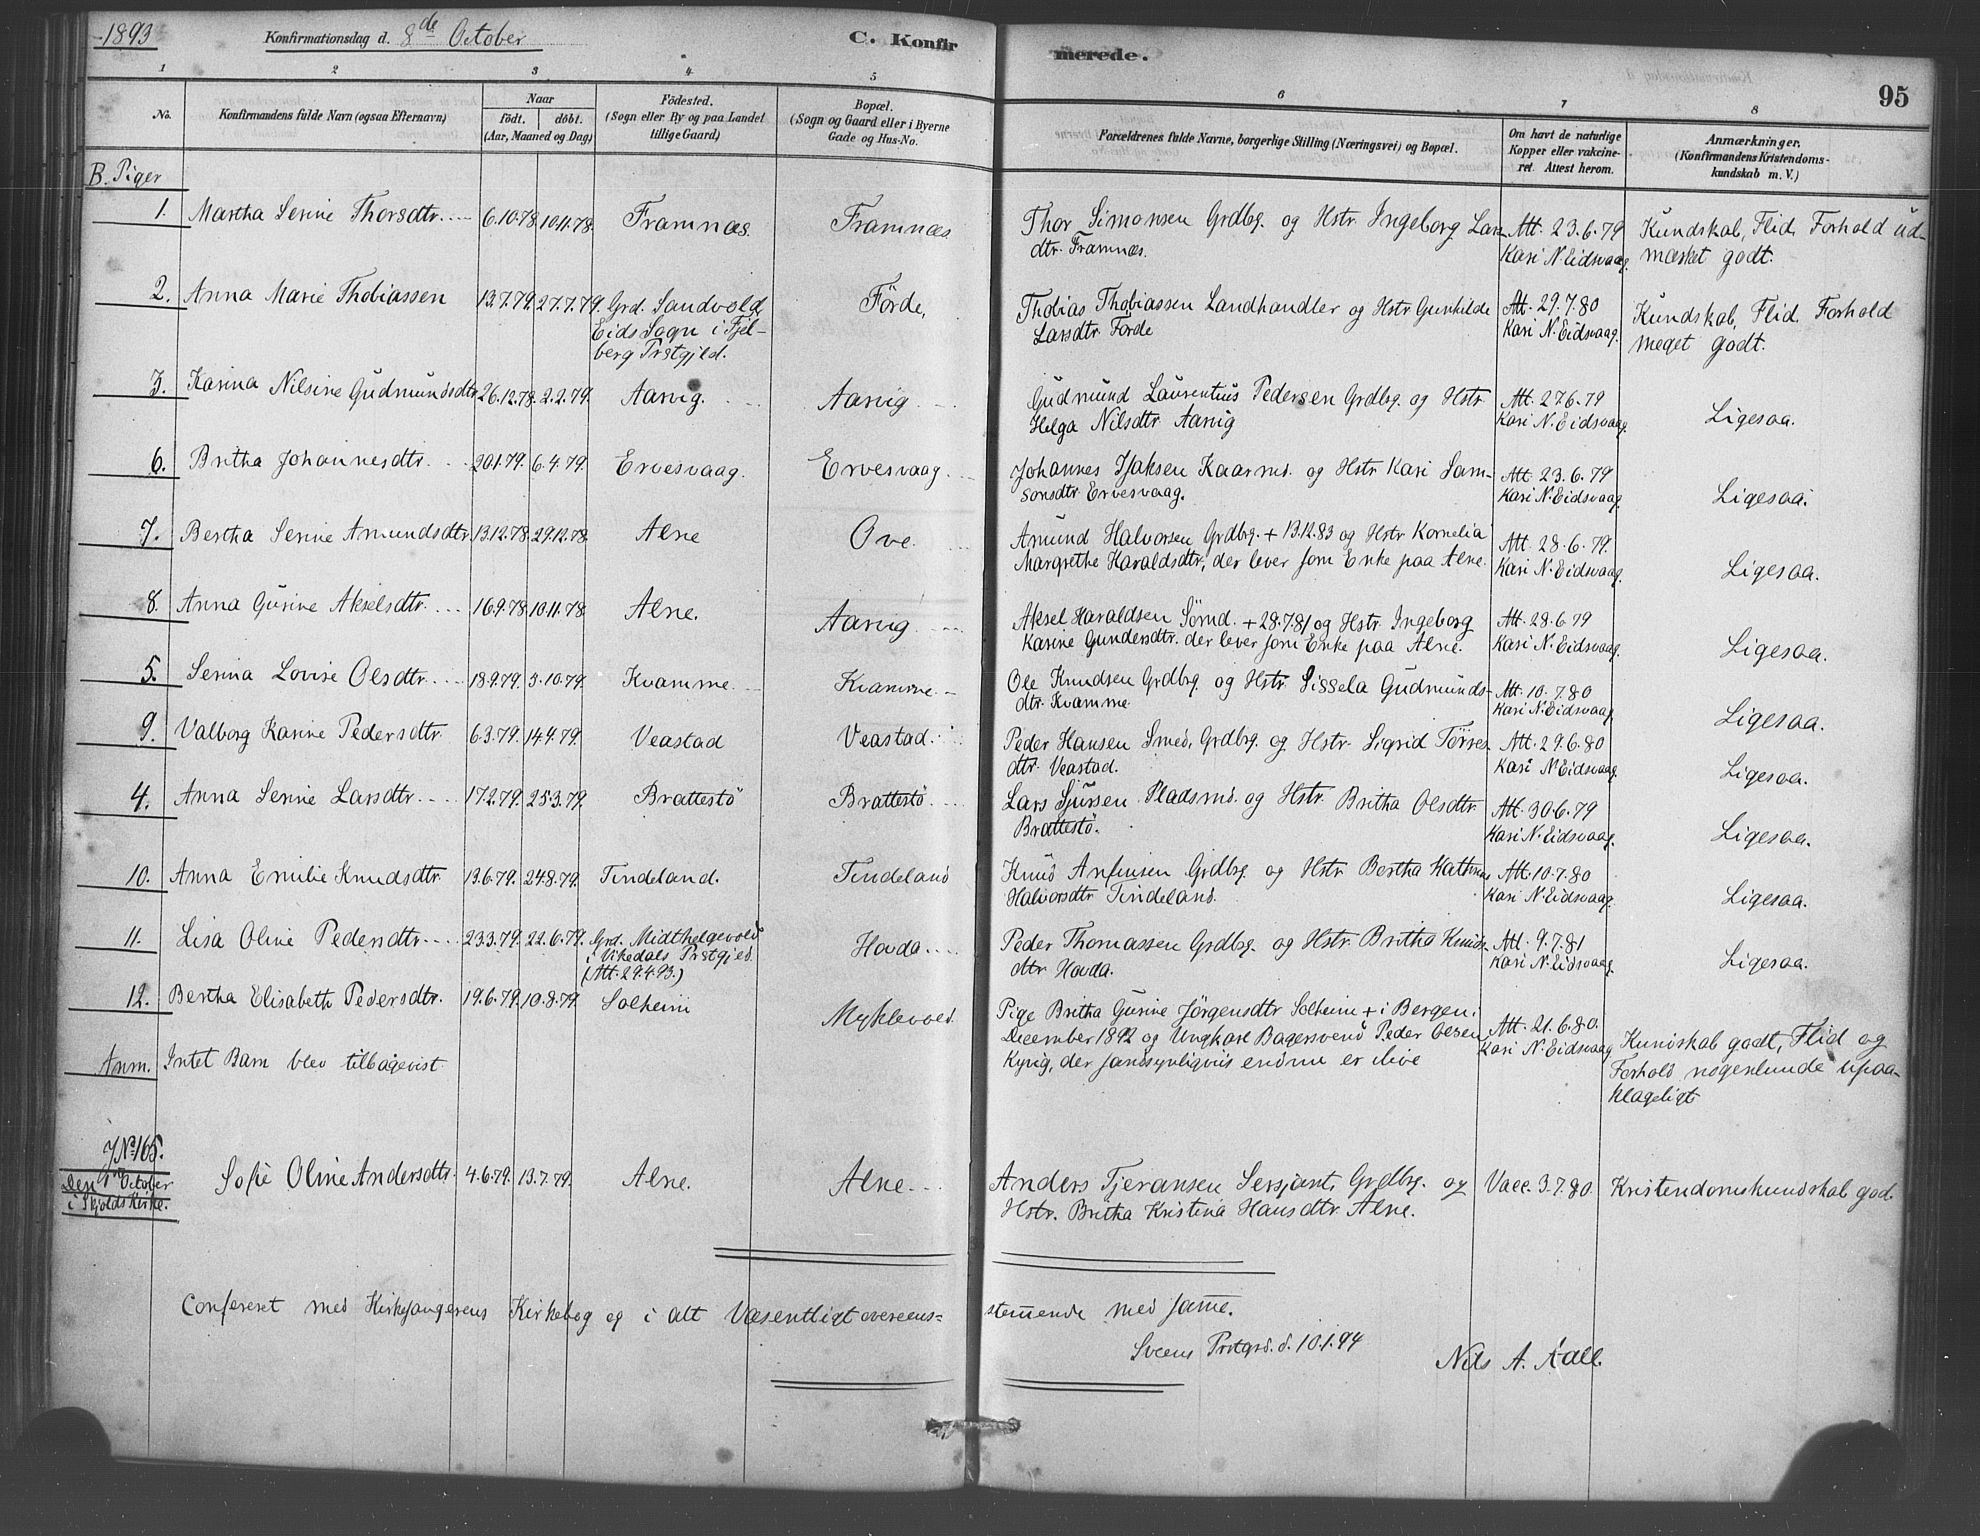 1893 Konfirmationsdag d. 8de October C. Konfirmerede. 95
1 2 3 4 5 6 7 8
No. Konfirmandens fulde Navn (ogsaa Efternavn) Naar Födested. Bopæl. Forældrenes fulde Navne, borgerlige Stilling (Næringsvei) og Bopæl. Om havt de naturlige Anmærkninger.
födt. döbt. (Sogn eller By og paa Landet (Sogn og Gaard eller i Byerne Kopper eller vakcine- (Konfirmandens Kristendoms-
(Aar, Maaned og Dag) tillige Gaard) Gade og Hus-No. ret. Attest herom. kundskab m. V.)
B. Piger
1. Martha Serine Thorsdtr. 6.10.78. 10.11.78. Framnæs. Framnæs. Thor Simonsen Grdbg. og Hstr. Ingeborg Lars Att. 23.6.79 Kundskab, Flid, Forhold ud-
dtr. Framnæs. Kari N Eidsvaag. mærket godt.
2. Anna Marie Thobiassen 13.7.79. 27.7.79. Grd. Sandvold Förde, Thobias Thobiassen Landhandler og Hstr Gunhilde Att. 29.7.80 Kundskab, Flid, Forhold
Eids Sogn i Fjel- Larsdtr Förde Kari N. Eidsvaag. meget godt.
berg Prstgjeld.
3. Karina Nilsine Gudmundsdtr 26.12.78. 2.2.79. Aarvig. Aarvig. Gudmund Laurentius Pedersen Grdbg. og Hstr. Att. 27.6.79 Ligesaa.
Helga Nilsdtr Aarvig Kari N. Eidsvaag.
6. Britha Johannesdtr. 20.1.79. 6.4.79. Ervesvaag. Ervesvaag. Johannes Isaksen Kaarmd. og Hstr Kari Sam- Att. 23.6.79 Ligesaa.
sonsdtr. Ervesvaag. Kari N. Eidsvaag.
7. Bertha Serine Amundsdtr 13.12.78. 29.12.78. Alne Ove. Amund Halvorsen Grdbg. + 13.12.83 og Hstr Kornelia Att. 28.6.79. Ligesaa.
Margrethe Haraldsdtr, der lever som Enke paa Alne. Kari N. Eidsvaag.
8. Anna Gurine Akselsdtr. 16.9.78. 10.11.78. Alne. Aarvig. Aksel Haraldsen Sömd. + 28.7.81 og Hstr. Ingeborg Att. 28.6.79 Ligesaa.
Karine Gundersdtr. der lever som Enke paa Alne. Kari N. Eidsvaag.
5. Serina Lovise Olsdtr. 18.9.79. 5.10.79. Kvamme. Kvamme. Ole Knudsen Grdbg. og Hstr Sissela Gudmunds- Att. 10.7.80 Ligesaa.
dtr. Kvamme. Kari N. Eidsvaag.
9. Valborg Karine Pedersdtr 6.3.79. 14.4.79. Veastad Veastad. Peder Hansen Smed, Grdbg. og Hstr. Sigrid Törres- Att. 29.6.80 Ligesaa.
dtr. Veastad. Kari N Eidsvaag.
4. Anna Serine Larsdtr. 17.2.79. 25.3.79. Brattestö Brattestö. Lars Sjursen Pladsmd. og Hstr. Britha Olsdtr. Att. 30.6.79 Ligesaa.
Brattestö. Kari N. Eidsvaag.
10. Anna Emilie Knudsdtr. 13.6.79. 24.8.79. Tindeland. Tindeland Knud Anfinsen Grdbg. og Hstr Bertha Kathrine Att. 10.7.80 Ligesaa.
Halvorsdtr Tindeland. Kari N. Eidsvaag.
11. Lisa Oline Pedersdtr. 23.3.79. 22.6.79. Grd. Midthelgevold Hovda. Peder Thomassen Grdbg. og Hstr. Britha Knuds- Att. 9.7.81 Ligesaa.
i Vikedals Prstgjeld. dtr. Hovda. Kari N. Eidsvaag.
(Att. 29.4.93.)
12. Bertha Elisabeth Pedersdtr. 19.6.79. 10.8.79. Solheim Myklevold. Pige Britha Gurine Jörgensdtr Solheim + i Bergen i Att. 21.6.80. Kundskab godt, Flid og
December 1892 og Ungkarl Bagersvend Peder Olsen Kari N. Eidsvaag Forhold nogenlunde upaa-
Kyvig, der sandsynligviis endnu er ilive klageligt
Anm. Intet Barn blev tilbagevist.
J No 165.
Den 1ste October
i Skjolds Kirke. Sofie Oline Andersdtr. 4.6.79. 13.7.79. Alne. Alne. Anders Tjeransen Sersjant, Grdbg. og Vacc. 3.7.80. Kristendomskundskab god.
Hstr. Britha Kristina Hansdtr. Alne.
Confereret med Kirkesangerens Kirkebog og i alt Væsentligt overeens= stemende med same.
Sveens Prstgrd. d. 10.1.94 Nils A. Aall.